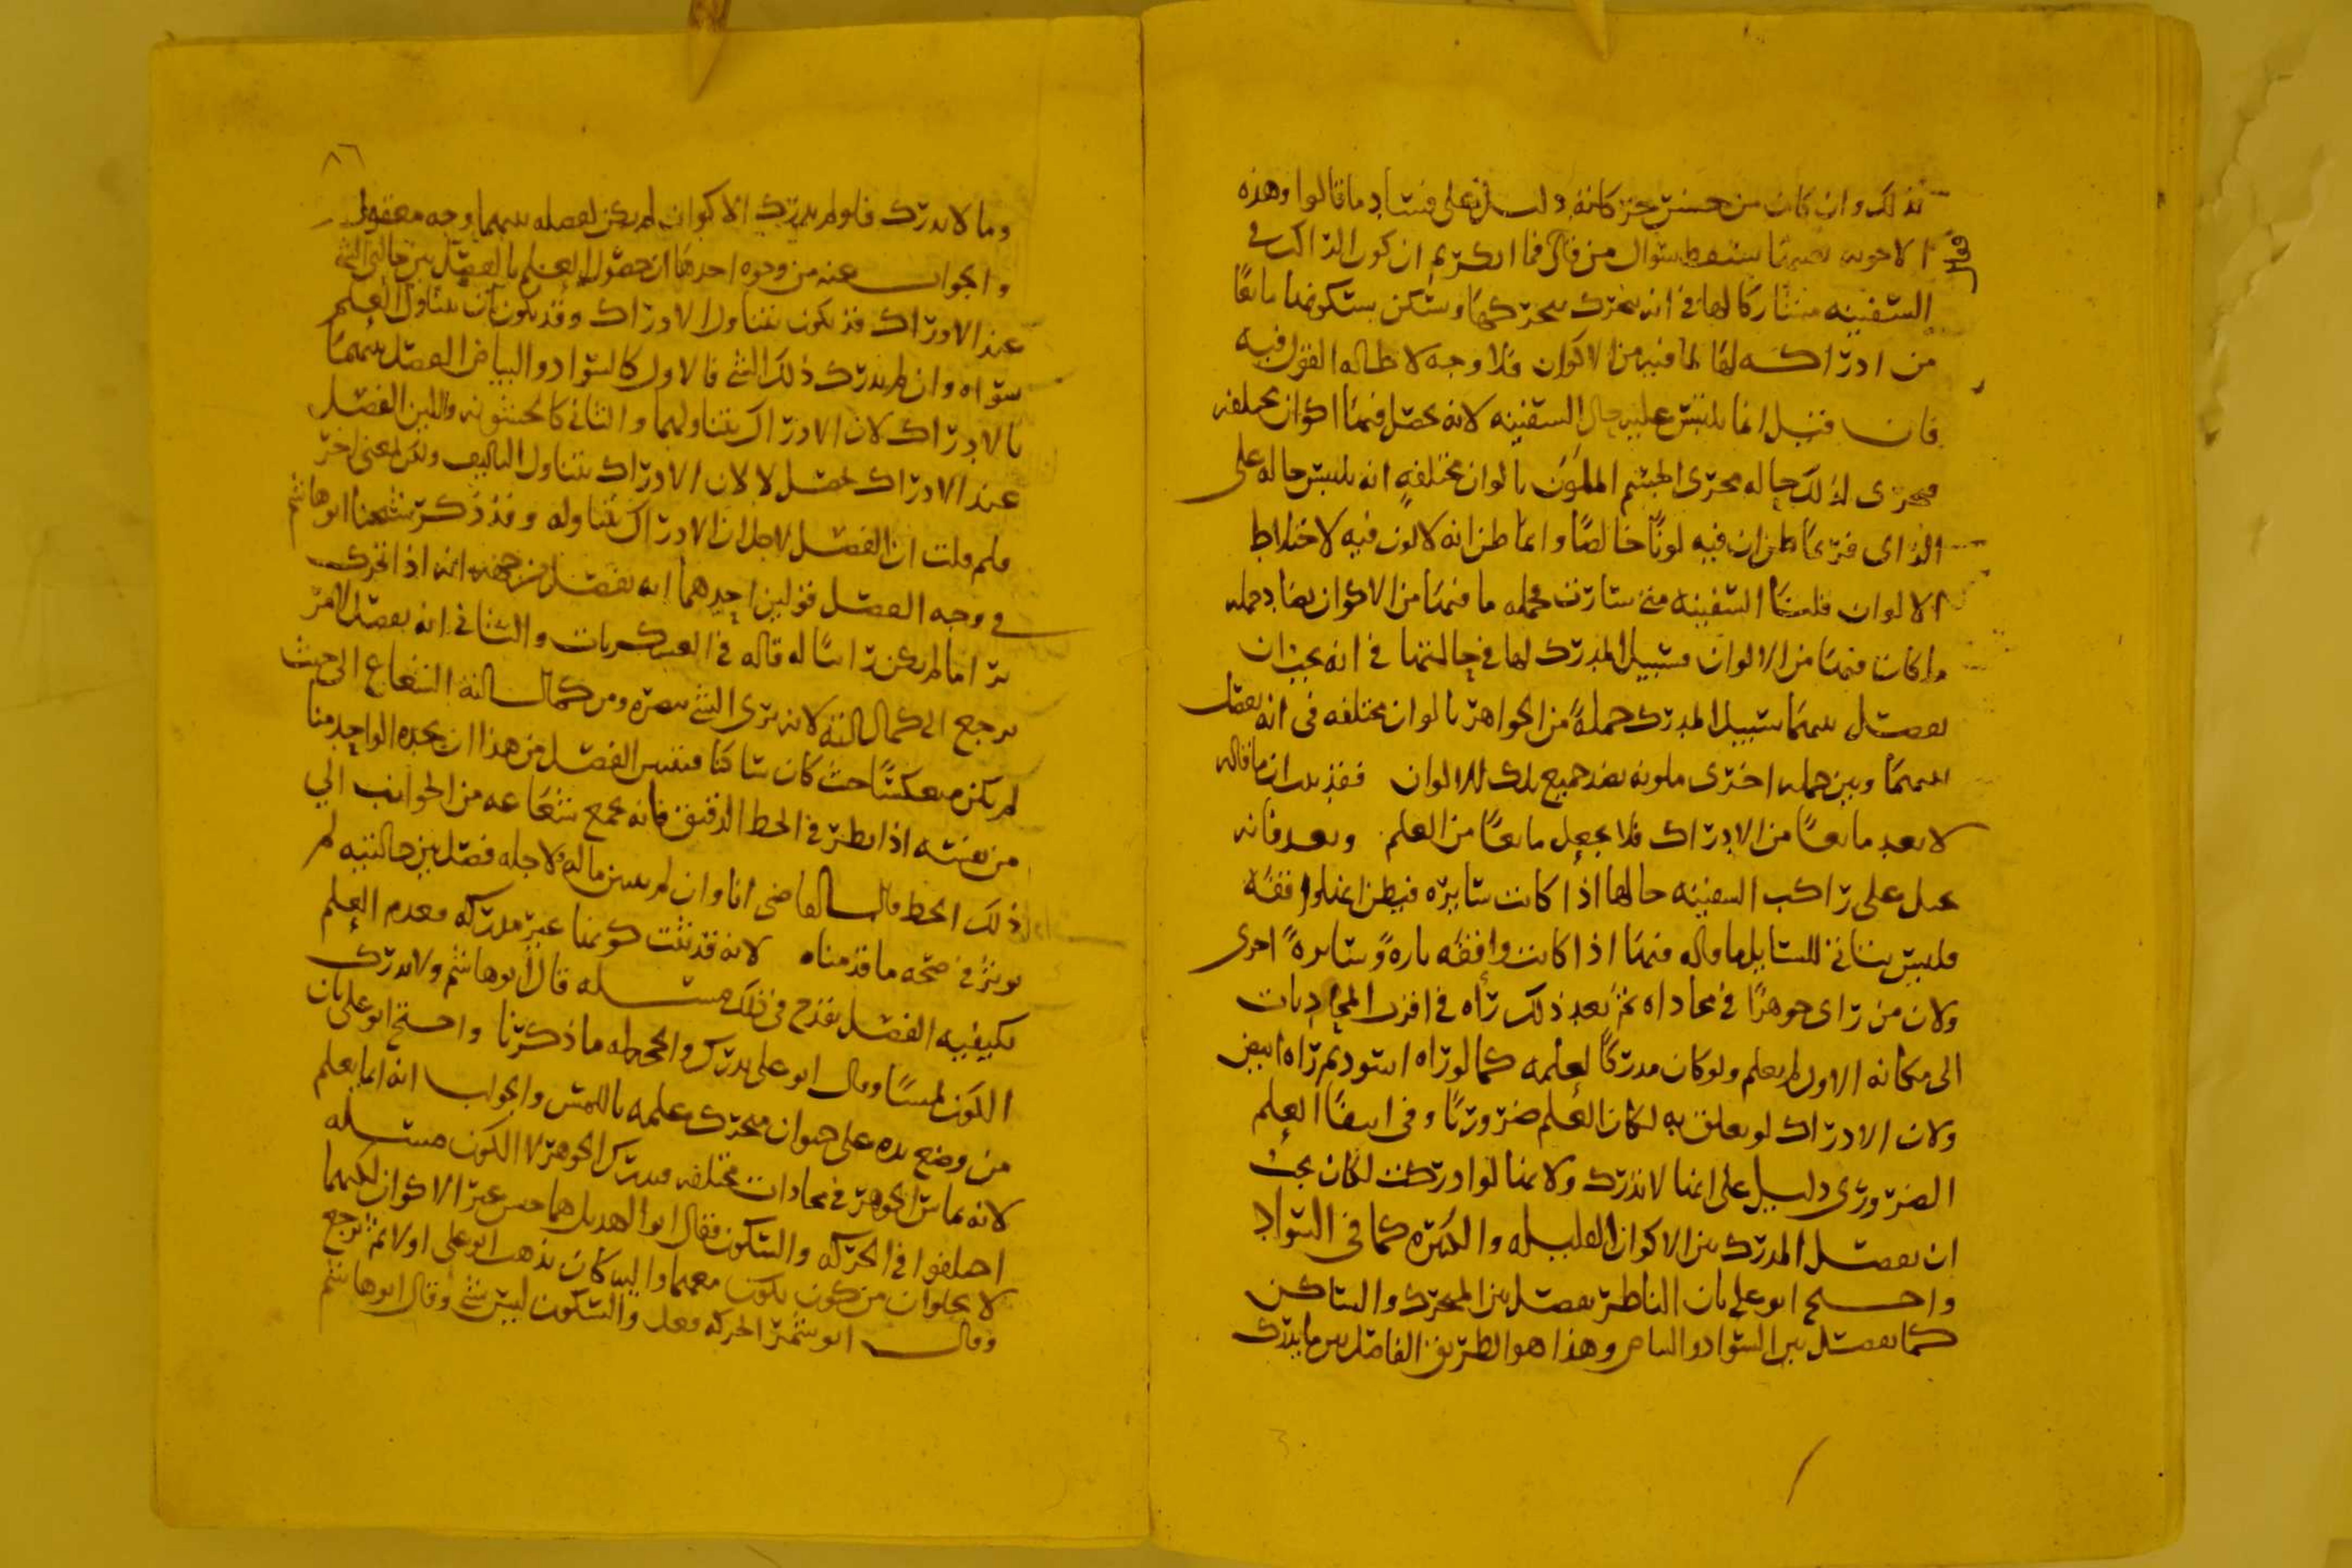 بذلك وان كان من جنس حركاته دليل على فساد ما قالوا وهذه
الاجوبه بعينها تسقط سؤال من قال فما انكرتم ان كون الراكب في
السفينه مشاركا لها في انه يتحرك بتحركها ويسكن بسكونها مانعا
من ادراكه لها لما فيه من الاكوان فلا وجه لاطاله القول فيه
فان قيل انما يلتبس عليه حال السفينه لانه يحصل فيها اكوان مختلفه
فيجرى لذلك حاله مجرى الجسم الملون بالوان مختلفه انه يلتبس حاله على
الراى فربما ظن ان فيه لونا خالصا وانما ظن انه لا لون فيه لاختلاط
الالوان قلنا السفينه متى سارت فجمله ما فيها من الاكوان يضاد جمله
ما كان فيها من الالوان فسبيل المدرك لها في حالتيها في انه يجب ان
يفصل بينهما سبيل المدرك جمله من الجواهر بالوان مختلفه في انه يفصل
بينها وبين جمله اخرى ملونه بضد جميع تلك الالوان فقد بان ما قاله
لا يعد مانعا من الادراك فلا يجعل مانعا من العلم وبعد فانه
يخيل على راكب السفينه حالها اذا كانت سايره فيظن انها واقفه
فليس يتاتى للسايل ما قاله فيها اذا كانت واقفه تاره وسايره اخرى
ولان من راى جوهرا في محاذاه ثم بعد ذلك رآه في اقرب المحاذيات
الى مكانه الاول لم يعلم ولو كان مدركا لعلمه كما لو رآه اسود ثم رآه ابيض
ولان الادراك لو تعلق به لكان العلم ضروريا وفي انتفاء العلم
الضروري دليل على انها لا تدرك ولانها لو ادركت لكان يجب
ان يفصل المدرك بين الاكوان القليله والكثيره كما في السواد
واحتج ابو علي بان الناظر يفصل بين المتحرك والساكن
كما يفصل بين السواد والبياض وهذا هو الطريق الفاصل بين ما يدرك
٨٦
وما لا يدرك فلو لم يدرك الاكوان لم يكن لفصله بينهما وجه معقول
والجواب عنه من وجوه احدها ان حصول العلم بالفصل بين حالتي الشي
عند الادراك قد يكون بتناول الادراك وقد يكون بان يتناول العلم
سواه وان لم يدرك ذلك الشي فالاول كالسواد والبياض الفصل بينهما
بالادراك لان الادراك يتناولهما والثاني كالخشونه واللين الفصل
عند الادراك يحصل لا لان الادراك يتناول التاليف ولكن لمعنى اخر
فلم قلت ان الفصل لاجل ان الادراك يتناوله وقد ذكر شيخنا ابو هاشم
في وجه الفصل قولين احدهما انه يفصل من جهه انه اذا تحرك
يرا ما لم يكن رائيا له قاله في العسكريات والثاني انه يفصل لامر
يرجع الى كمال الته لانه يرى الشي ببصره ومن كمال الته الشعاع الى حيث
لم يكن منعكسا حيث كان ساكنا فيتبين الفصل من هذا ان يجده الواحد منا
من نفسه اذا نظر في الخط الدقيق فانه يجمع شعاعه من الجوانب الي
ذلك الخط قال القاضى انا وان لم نبين ماله ولاجله فصل بين حالتيه لم
يوثر في صحه ما قدمناه لانه قد ثبت كونها غير مدركه فعدم العلم
بكيفيه الفصل يقدح في ذلك مسله قال ابو هاشم ولا يدرك
الكون لمسا وقال ابو علي يدرك والحجه له ما ذكرنا واحتج ابو علي بان
من وضع يده على حيوان متحرك علمه باللمس والجواب انه انما يعلم
لانه يماس الجوهر في محاذات مختلفه فيدرك الجوهر لا الكون مسله
اختلفوا في الحركه والسكون فقال ابو الهديل هما جنس غير الاكوان لكنهما
لا يخلوان من كون يكون معهما واليه كان يذهب ابو علي اولا ثم رجع
وقال ابو شمر الحركه فعل والسكون ليس شي وقال ابو هاشم